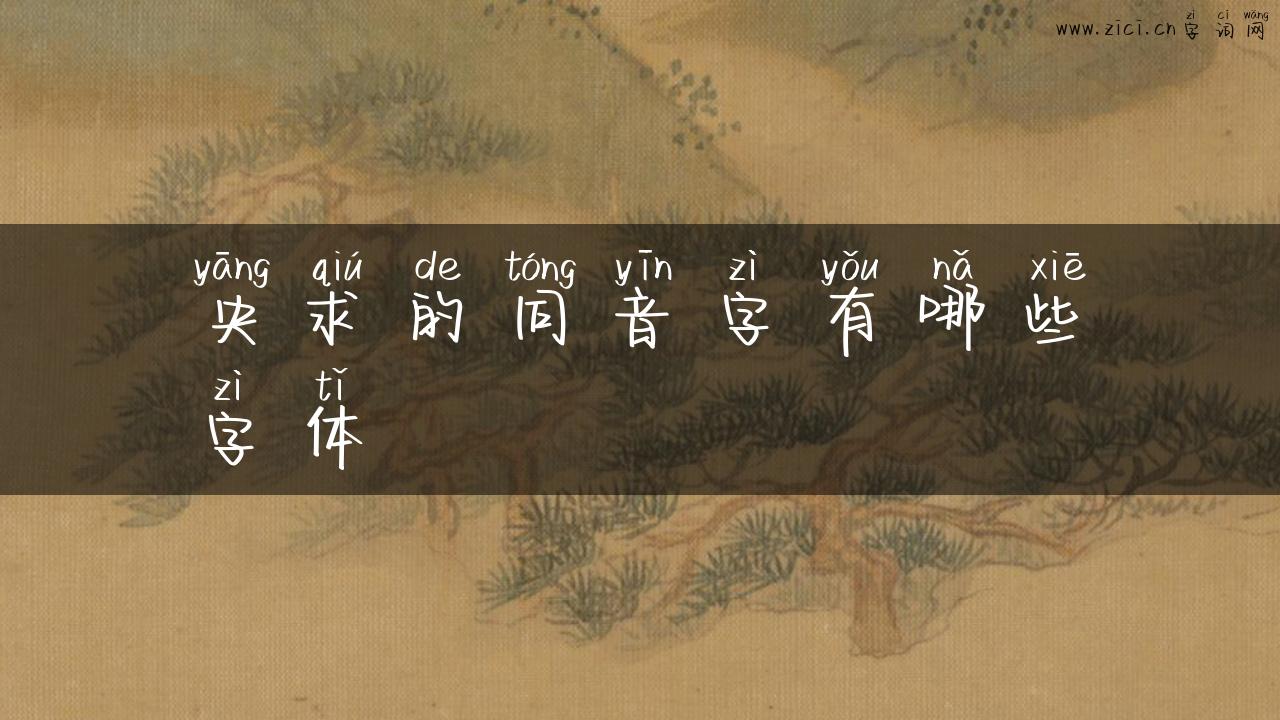 zì cí wǎng
www.zici.cn 字 词 网
yāng qiú de tóng yīn zì yǒu nǎ xiē
央 求 的 同 音 字 有 哪 些
zì tǐ
字 体